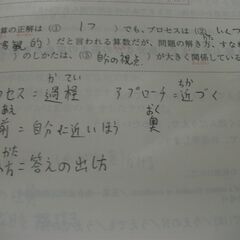 算の正解は（① １つ ）でも、プロセスは（② いくつ
客観 的）だと言われる算数だが、問題の解き方、すな
）のしかたは、（⑤ 自分の視点 ）が大きく関係している
かてい ちか
セス＝過程 アプローチ＝近づく
まえ おく
前＝自分に近いほう 奥
かた
方＝答えの出し方